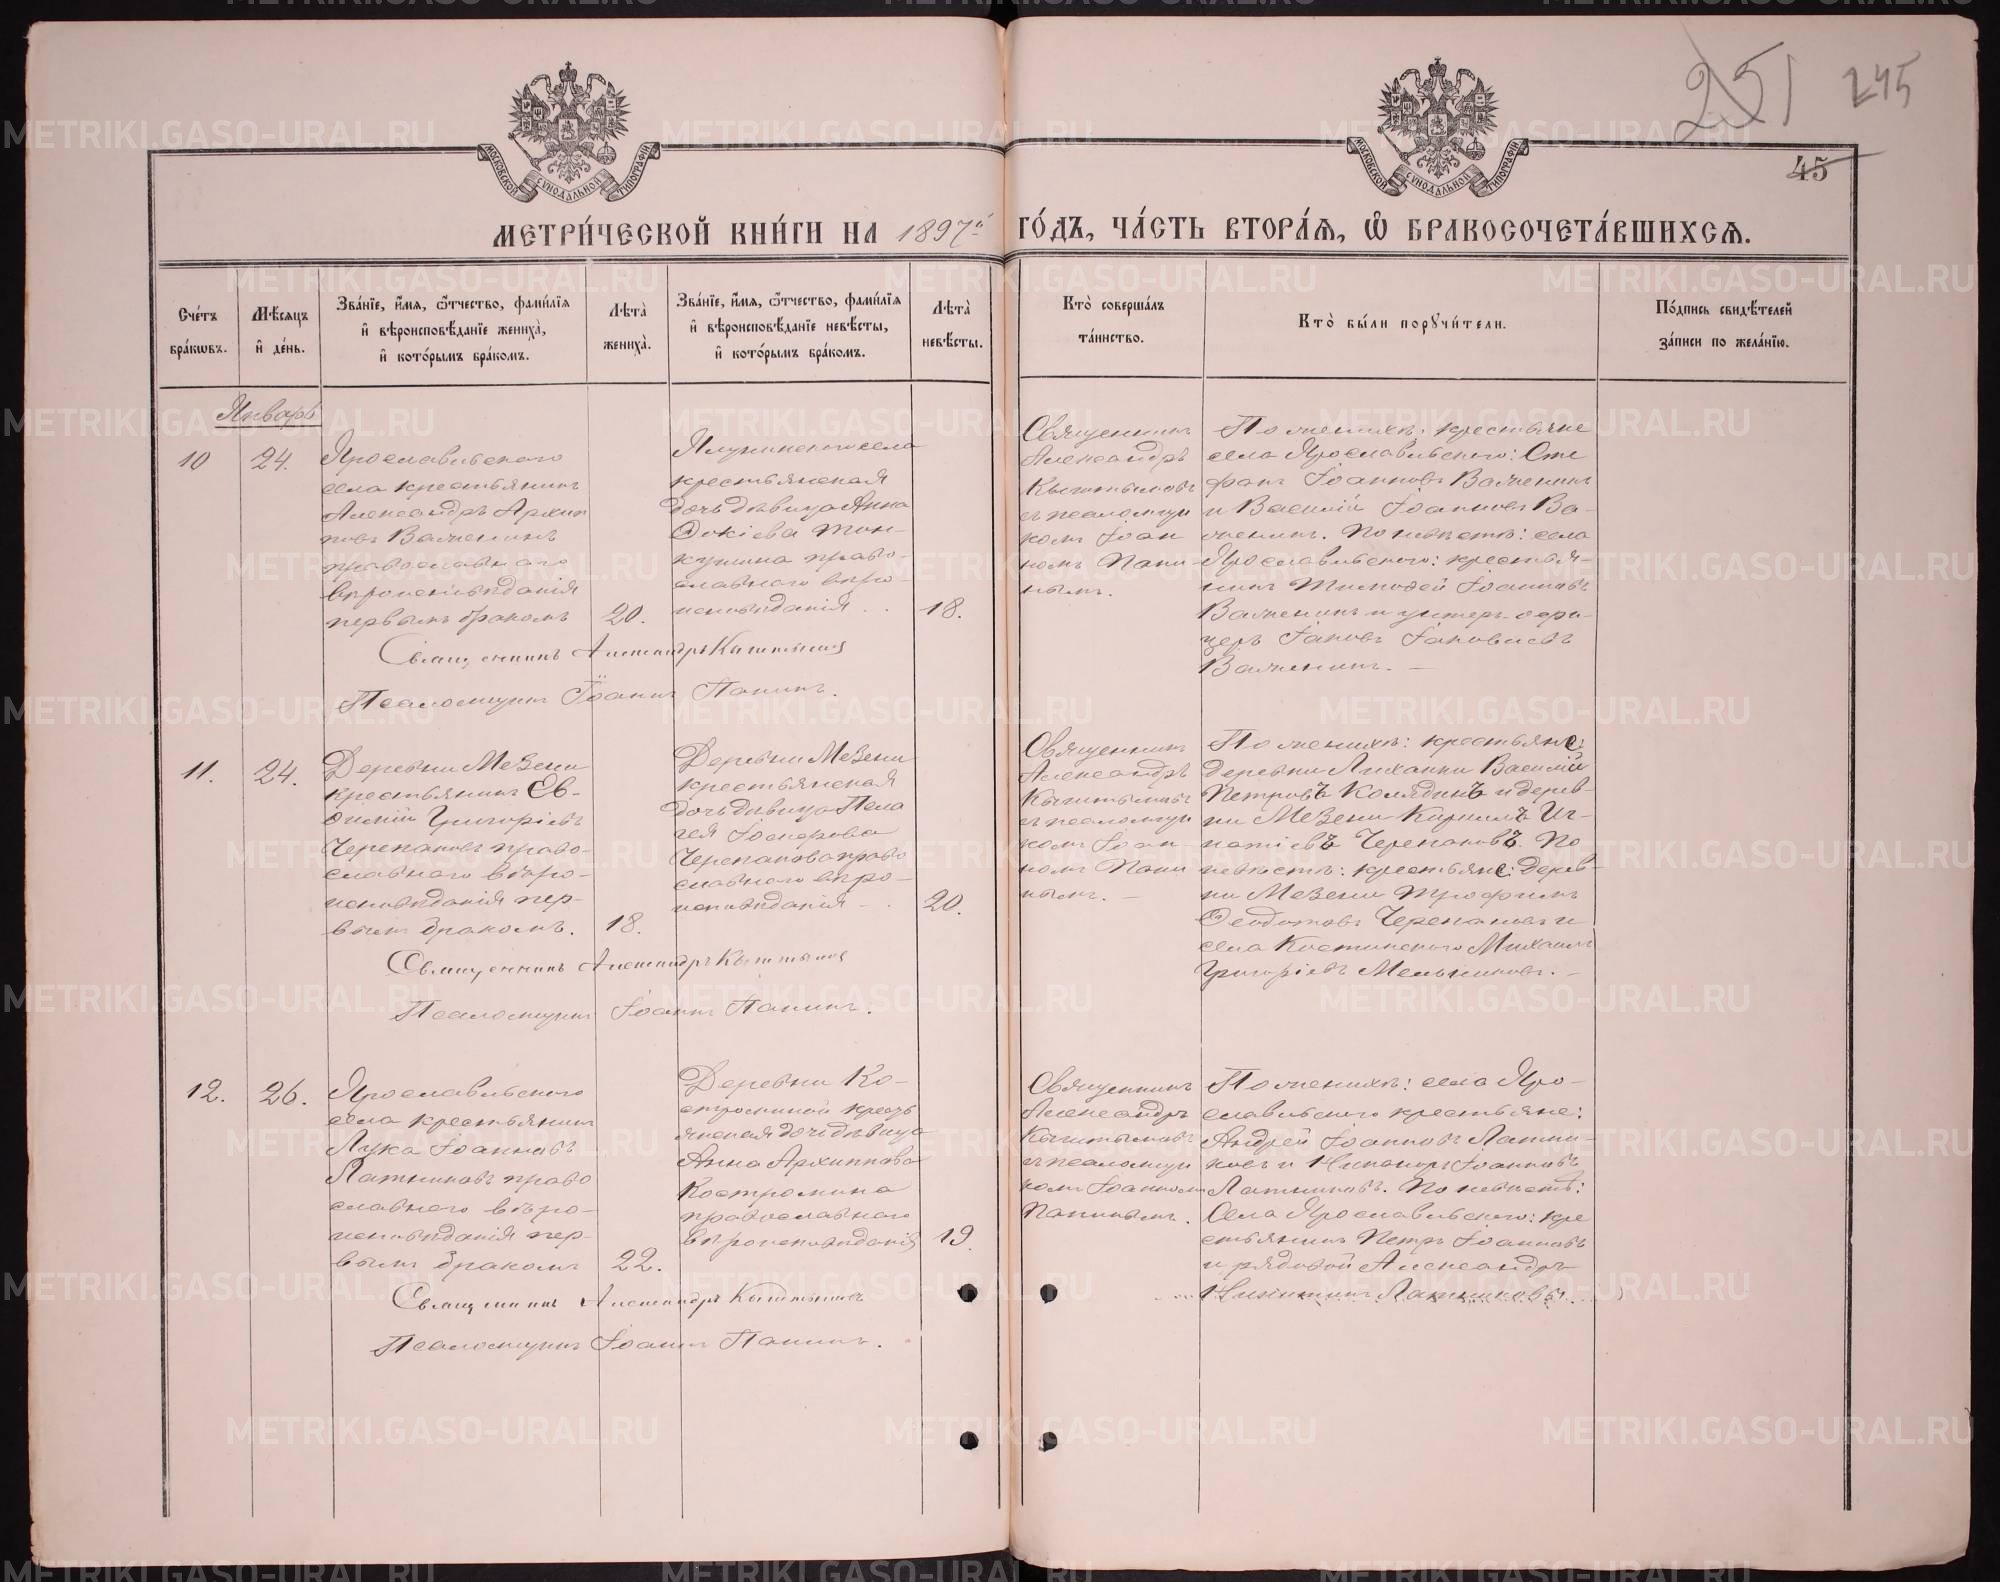 251 245
45
МОСКОВСКОЙ СѴНОДАЛЬНОЙ ТИПОГРАФІИ
МОСКОВСКОЙ СѴНОДАЛЬНОЙ ТИПОГРАФІИ
МЕТРИ́ЧЕСКОЙ КНИ́ГИ НА 1897й ГО́ДЪ, ЧА́СТЬ ВТОРА́Ѧ, Ѽ БРАКОСОЧЕТА́ВШИХСѦ.
Сче́тъ бра́кѡвъ.
Мѣ́сѧцъ и҆ де́нь.
Зва́нїе, и҆́мѧ, ѻ҆́тчество, фами́лїѧ
и҆ вѣроисповѣ́данїе жениха̀,
и҆ кото́рымъ бра́комъ.
Лѣ́та̀ жениха̀.
Зва́нїе, и҆́мѧ, ѻ҆́тчество, фами́лїѧ
и҆ вѣроисповѣ́данїе невѣ́сты,
и҆ кото́рымъ бра́комъ.
Лѣ́та̀ невѣ́сты.
Кто̀ соверша́лъ
та́инство.
Кто̀ бы́ли порꙋчи́тели.
По́дпись свидѣ́телей
за́писи по жела́нїю.
Январь
10
24.
Ярославльского
села крестьянинъ
Александръ Архип
повъ Важенинъ
православнаго
вѣроисповѣданія
первымъ бракомъ
20.
села
крестьянская
дочь дѣвица Анна
Фокіева Тон-
кушина право-
славнаго вѣро-
исповѣданія. .
18.
Священникъ
Александръ
Кыштымовъ
съ псаломщи
комъ Іоан
номъ Пани-
нымъ.
По женихѣ: крестьяне
села Ярославльского: Сте
фанъ Іоанновъ Важенинъ
и Василій Іоанновъ Ва-
женинъ. По невѣстѣ: села
Ярославльского: крестья-
нинъ Тимофей Іоанновъ
Важенинъ и унтеръ-офи-
церъ Іаковъ Іаковлевъ
Важенинъ. —
Священникъ Александръ Кыштымовъ
Псаломщикъ Іоаннъ Панинъ.
11.
24.
Деревни Мезени
крестьянинъ Ев-
фимій Григоріевъ
Черепановъ право-
славнаго вѣро-
исповѣданія пер-
вымъ бракомъ.
18.
Деревни Мезени
крестьянская
дочь дѣвица Пела
гея Іосифова
Черепанова право
славнаго вѣро-
исповѣданія - .
20.
Священникъ
Александръ
Кыштымовъ
съ псаломщи
комъ Іоан-
номъ Пани
нымъ. —
По женихѣ: крестьяне:
деревни Лиханки Василій
Петровъ Колядинъ и дерев-
ни Мезени Кириллъ Иг-
натіевъ Черепановъ. По
невѣстѣ: крестьяне: дерев-
ни Мезени Трофимъ
Феодотовъ Черепановъ и
села Костинского Михаилъ
Григоріевъ Мельниковъ. —
Священникъ Александръ Кыштымовъ
Псаломщикъ Іоаннъ Панинъ.
12.
26.
Ярославльского
села крестьянинъ
Лука Іоанновъ
Латниковъ право
славнаго вѣро-
исповѣданія пер-
вымъ бракомъ
22.
Деревни Ко-
строминой кресть
янская дочь дѣвица
Анна Архиппова
Костромина
православнаго
вѣроисповѣданія
19.
Священникъ
Александръ
Кыштымовъ
съ псаломщи
комъ Іоанномъ
Панинымъ.
По женихѣ: села Яро-
славльского крестьяне:
Андрей Іоанновъ Латни-
ковъ и Никаноръ Іоанновъ
Латниковъ. По невѣстѣ:
Села Ярославльского: кре
стьянинъ Петръ Іоанновъ
и рядовой Александръ
Никитинъ Латниковы.
Священникъ Александръ Кыштымовъ
Псаломщикъ Іоаннъ Панинъ.
METRIKI.GASO-URAL.RU